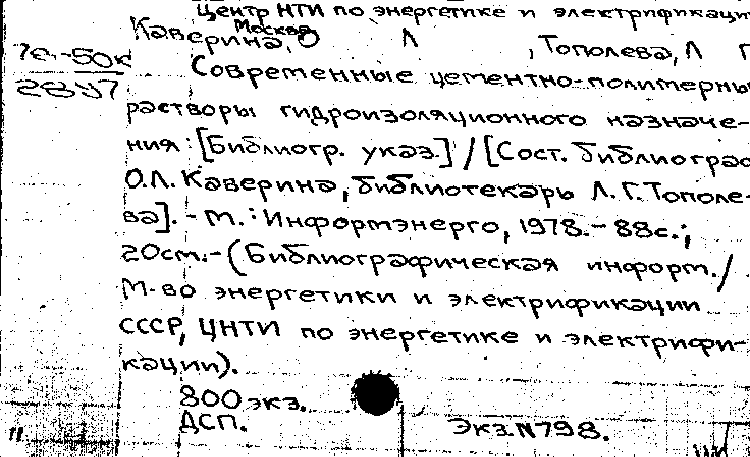 Центр НТИ по энергетике и электрификаци
Москва
Каверина, О Л , Тополева, Л Г
78-50к
28 97
Современные цементно-полимерны
растворы гидроизоляционного назначе-
ния: [Библиогр. указ.] / [Сост. библиограф
О.Л. Каверина, библиотекарь Л.Г. Тополе-
ва]. - М.: Информэнерго, 1978. - 88с.;
20см. - (Библиографическая информ. /
М-во энергетики и электрификации
СССР, ЦНТИ по энергетике и электрифи-
кации).
800 экз.
ДСП.
Экз. N798.